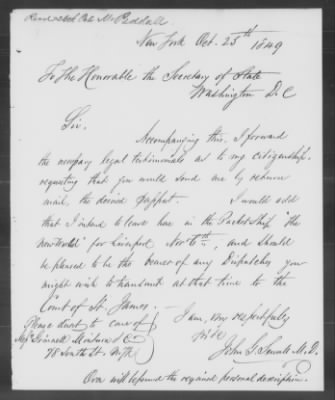 New York Oct. 25th 1849
To the Honorable the Secretary of State
Washington D C
Sir.
Accompanying this, I forward
the necessary legal testimonials as to my citizenship,
requesting that you would send me by return
mail, the desired passport. I would add
that I intend to leave here in the Packet Ship "the
New World" for Liverpool Nov 6th, and should
be pleased to be the bearer of any Dispatches you
might wish to transmit at that time to the
Court of St. James. —
I am, very respectfully
Please direct to care of
Mess Grinnell Minturn & Co
78 South St. N.Y.
John G. Sewall M.D.
Over will be found the required personal description.